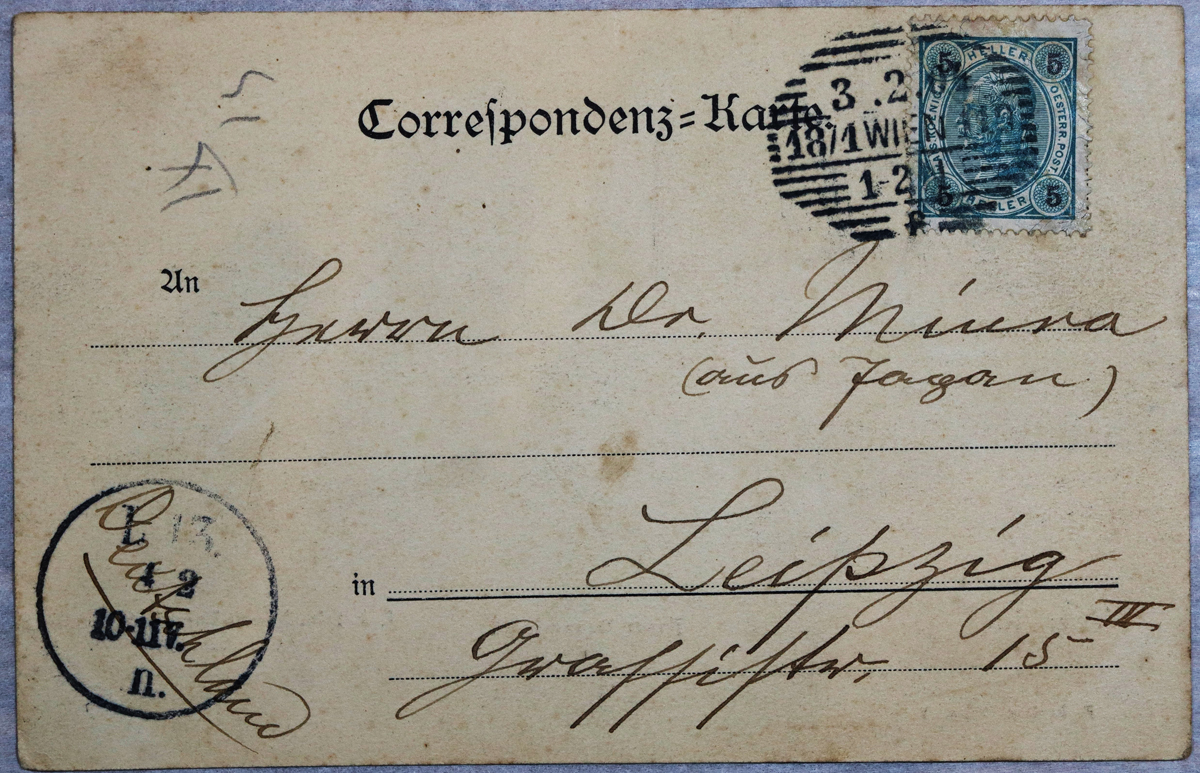 Correspondenz=Karte.
3.2.
18/1 WIEN
1-2
5 HELLER 5
OESTERR. POST
5 HELLER 5
An
Herrn Dr. Miura
(aus Japan)
in Leipzig
Grassistr. 15 III
Deutschland
L 13.
4 2
10-11 V.
n.